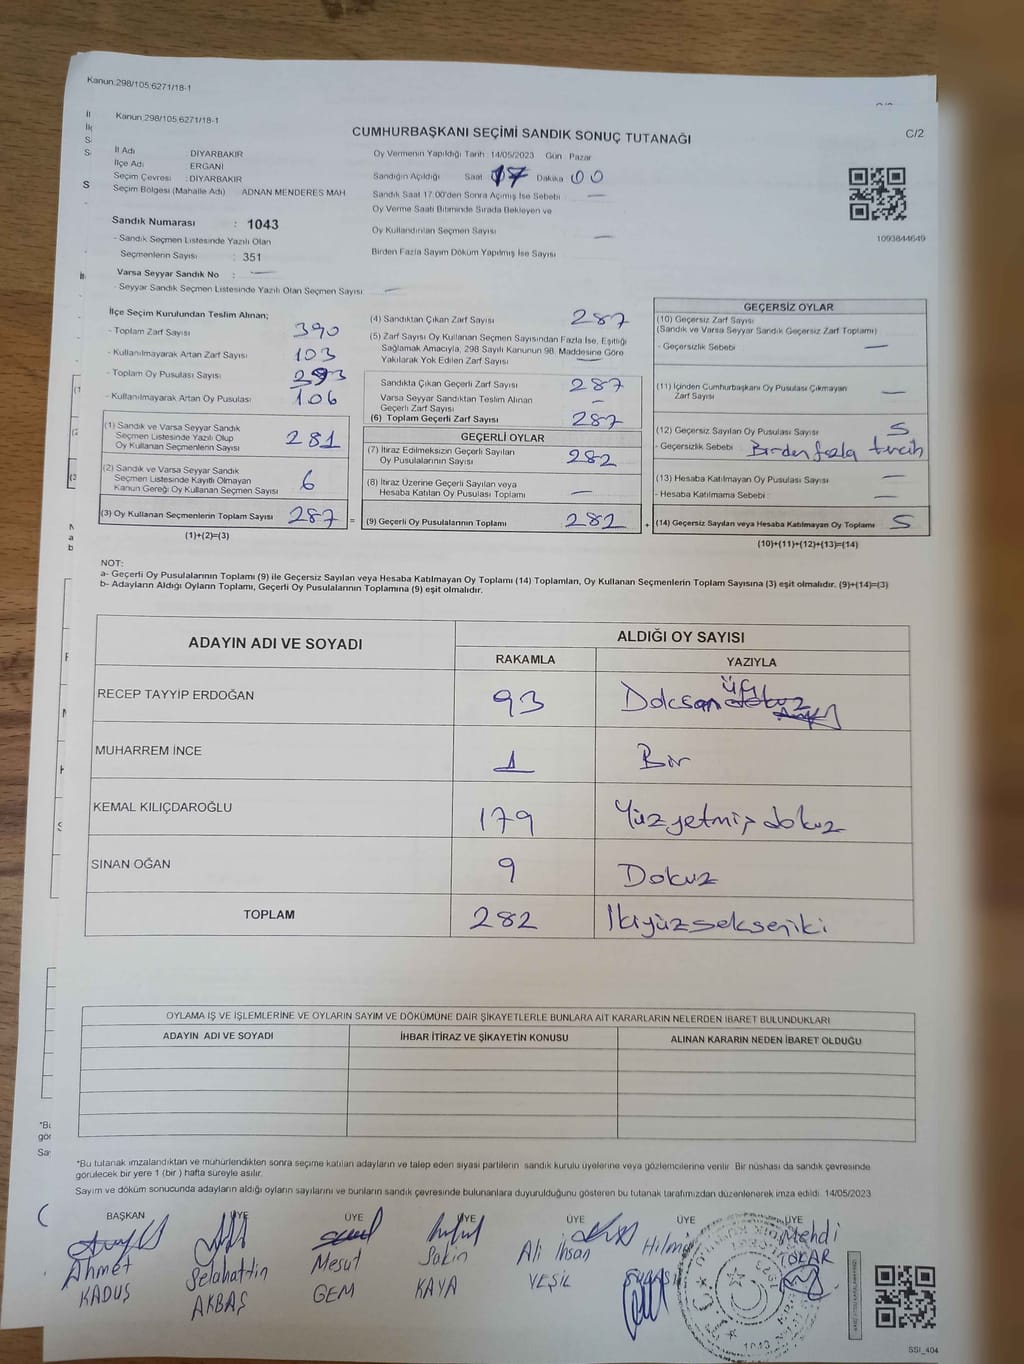 Kanun:298/105,6271/18-1
Kanun:298/105,6271/18-1
CUMHURBAŞKANI SEÇİMİ SANDIK SONUÇ TUTANAĞI
C/2
İl Adı DİYARBAKIR
İlçe Adı ERGANİ
Seçim Çevresi : DİYARBAKIR
Seçim Bölgesi (Mahalle Adı) ADNAN MENDERES MAH
Oy Vermenin Yapıldığı Tarih 14/05/2023 Gün Pazar
Sandığın Açıldığı Saat 17 Dakika 00
Sandık Saat 17:00'den Sonra Açımış İse Sebebi —
Oy Verme Saati Bitiminde Sırada Bekleyen ve
Oy Kullandırılan Seçmen Sayısı —
Birden Fazla Sayım Döküm Yapılmış İse Sayısı
1093844649
Sandık Numarası : 1043
- Sandık Seçmen Listesinde Yazılı Olan
Seçmenlerin Sayısı : 351
Varsa Seyyar Sandık No : —
- Seyyar Sandık Seçmen Listesinde Yazılı Olan Seçmen Sayısı: —
İlçe Seçim Kurulundan Teslim Alınan;
- Toplam Zarf Sayısı 390
- Kullanılmayarak Artan Zarf Sayısı 103
- Toplam Oy Pusulası Sayısı 293
- Kullanılmayarak Artan Oy Pusulası 106
(1) Sandık ve Varsa Seyyar Sandık
Seçmen Listesinde Yazılı Olup
Oy Kullanan Seçmenlerin Sayısı 281
(2) Sandık ve Varsa Seyyar Sandık
Seçmen Listesinde Kayıtlı Olmayan
Kanun Gereği Oy Kullanan Seçmen Sayısı 6
(3) Oy Kullanan Seçmenlerin Toplam Sayısı 287 =
(1)+(2)=(3)
(4) Sandıktan Çıkan Zarf Sayısı 287
(5) Zarf Sayısı Oy Kullanan Seçmen Sayısından Fazla İse, Eşitliği
Sağlamak Amacıyla, 298 Sayılı Kanunun 98. Maddesine Göre
Yakılarak Yok Edilen Zarf Sayısı —
Sandıkta Çıkan Geçerli Zarf Sayısı 287
Varsa Seyyar Sandıktan Teslim Alınan
Geçerli Zarf Sayısı —
(6) Toplam Geçerli Zarf Sayısı 287
GEÇERLİ OYLAR
(7) İtiraz Edilmeksizin Geçerli Sayılan
Oy Pusulalarının Sayısı 282
(8) İtiraz Üzerine Geçerli Sayılan veya
Hesaba Katılan Oy Pusulası Toplamı —
(9) Geçerli Oy Pusulalarının Toplamı 282 +
GEÇERSİZ OYLAR
(10) Geçersiz Zarf Sayısı
(Sandık ve Varsa Seyyar Sandık Geçersiz Zarf Toplamı)
- Geçersizlik Sebebi —
(11) İçinden Cumhurbaşkanı Oy Pusulası Çıkmayan
Zarf Sayısı —
(12) Geçersiz Sayılan Oy Pusulası Sayısı 5
- Geçersizlik Sebebi Birden fazla tercih
(13) Hesaba Katılmayan Oy Pusulası Sayısı —
- Hesaba Katılmama Sebebi —
(14) Geçersiz Sayılan veya Hesaba Katılmayan Oy Toplamı 5
(10)+(11)+(12)+(13)=(14)
NOT:
a- Geçerli Oy Pusulalarının Toplamı (9) ile Geçersiz Sayılan veya Hesaba Katılmayan Oy Toplamı (14) Toplamları, Oy Kullanan Seçmenlerin Toplam Sayısına (3) eşit olmalıdır. (9)+(14)=(3)
b- Adayların Aldığı Oyların Toplamı, Geçerli Oy Pusulalarının Toplamına (9) eşit olmalıdır.
ADAYIN ADI VE SOYADI
ALDIĞI OY SAYISI
RAKAMLA YAZIYLA
RECEP TAYYİP ERDOĞAN 93 Doksan üç
MUHARREM İNCE 1 Bir
KEMAL KILIÇDAROĞLU 179 Yüzyetmiş dokuz
SİNAN OĞAN 9 Dokuz
TOPLAM 282 İkiyüzsekseniki
OYLAMA İŞ VE İŞLEMLERİNE VE OYLARIN SAYIM VE DÖKÜMÜNE DAİR ŞİKAYETLERLE BUNLARA AİT KARARLARIN NELERDEN İBARET BULUNDUKLARI
ADAYIN ADI VE SOYADI İHBAR İTİRAZ VE ŞİKAYETİN KONUSU ALINAN KARARIN NEDEN İBARET OLDUĞU
*Bu tutanak imzalandıktan ve mühürlendikten sonra seçime katılan adayların ve talep eden siyasi partilerin sandık kurulu üyelerine veya gözlemcilerine verilir. Bir nüshası da sandık çevresinde
görülecek bir yere 1 (bir) hafta süreyle asılır.
Sayım ve döküm sonucunda adayların aldığı oyların sayılarını ve bunların sandık çevresinde bulunanlara duyurulduğunu gösteren bu tutanak tarafımızdan düzenlenerek imza edildi. 14/05/2023
BAŞKAN ÜYE ÜYE ÜYE ÜYE ÜYE ÜYE
Ahmet KADUŞ
Selahattin AKBAŞ
Mesut GEM
Sakin KAYA
Ali İhsan YEŞİL
Hilmi
Mehdi
1043
SSI_404